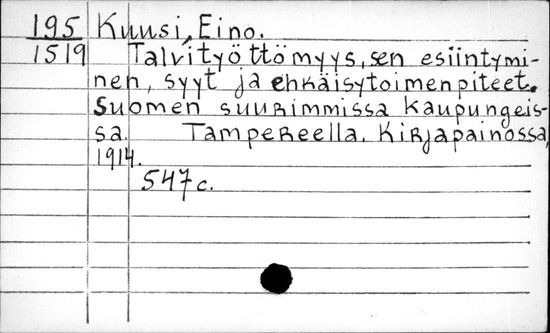 195 Kuusi, Eino.
1519 Talvityöttömyys, sen esiintymi-
nen, syyt ja ehkäisytoimenpiteet.
Suomen suurimmissa kaupungeis-
sa. Tampereella. Kirjapainossa,
1914.
547 c.